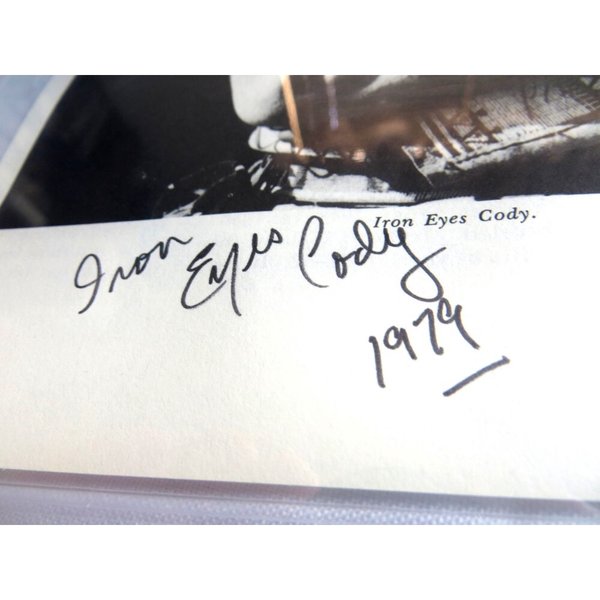 Iron Eyes Cody.
Iron Eyes Cody
1979